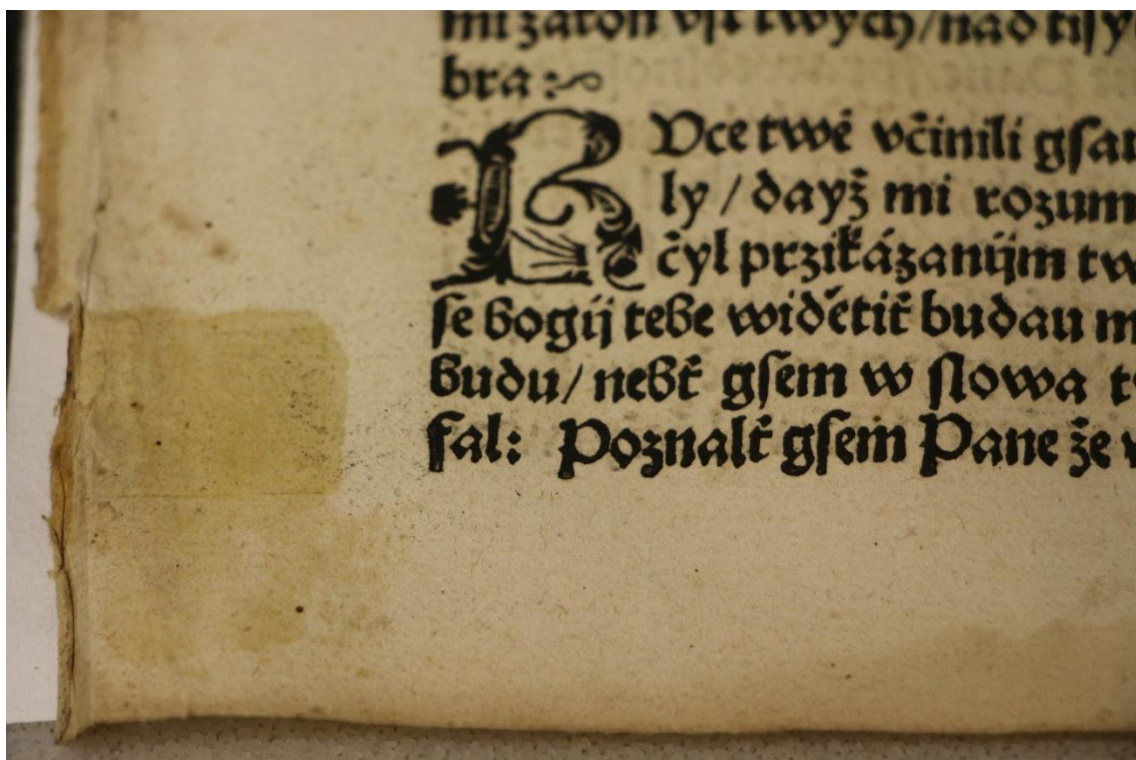 mi zákon vst twych / nad tisy
bra :~
RVce twé včinili gsau
ly / dayž mi rozum
čyl przikázanijm tw
se bogij tebe widětiť budau m
budu / nebť gsem w slowa t
fal : Poznalť gsem Pane že w